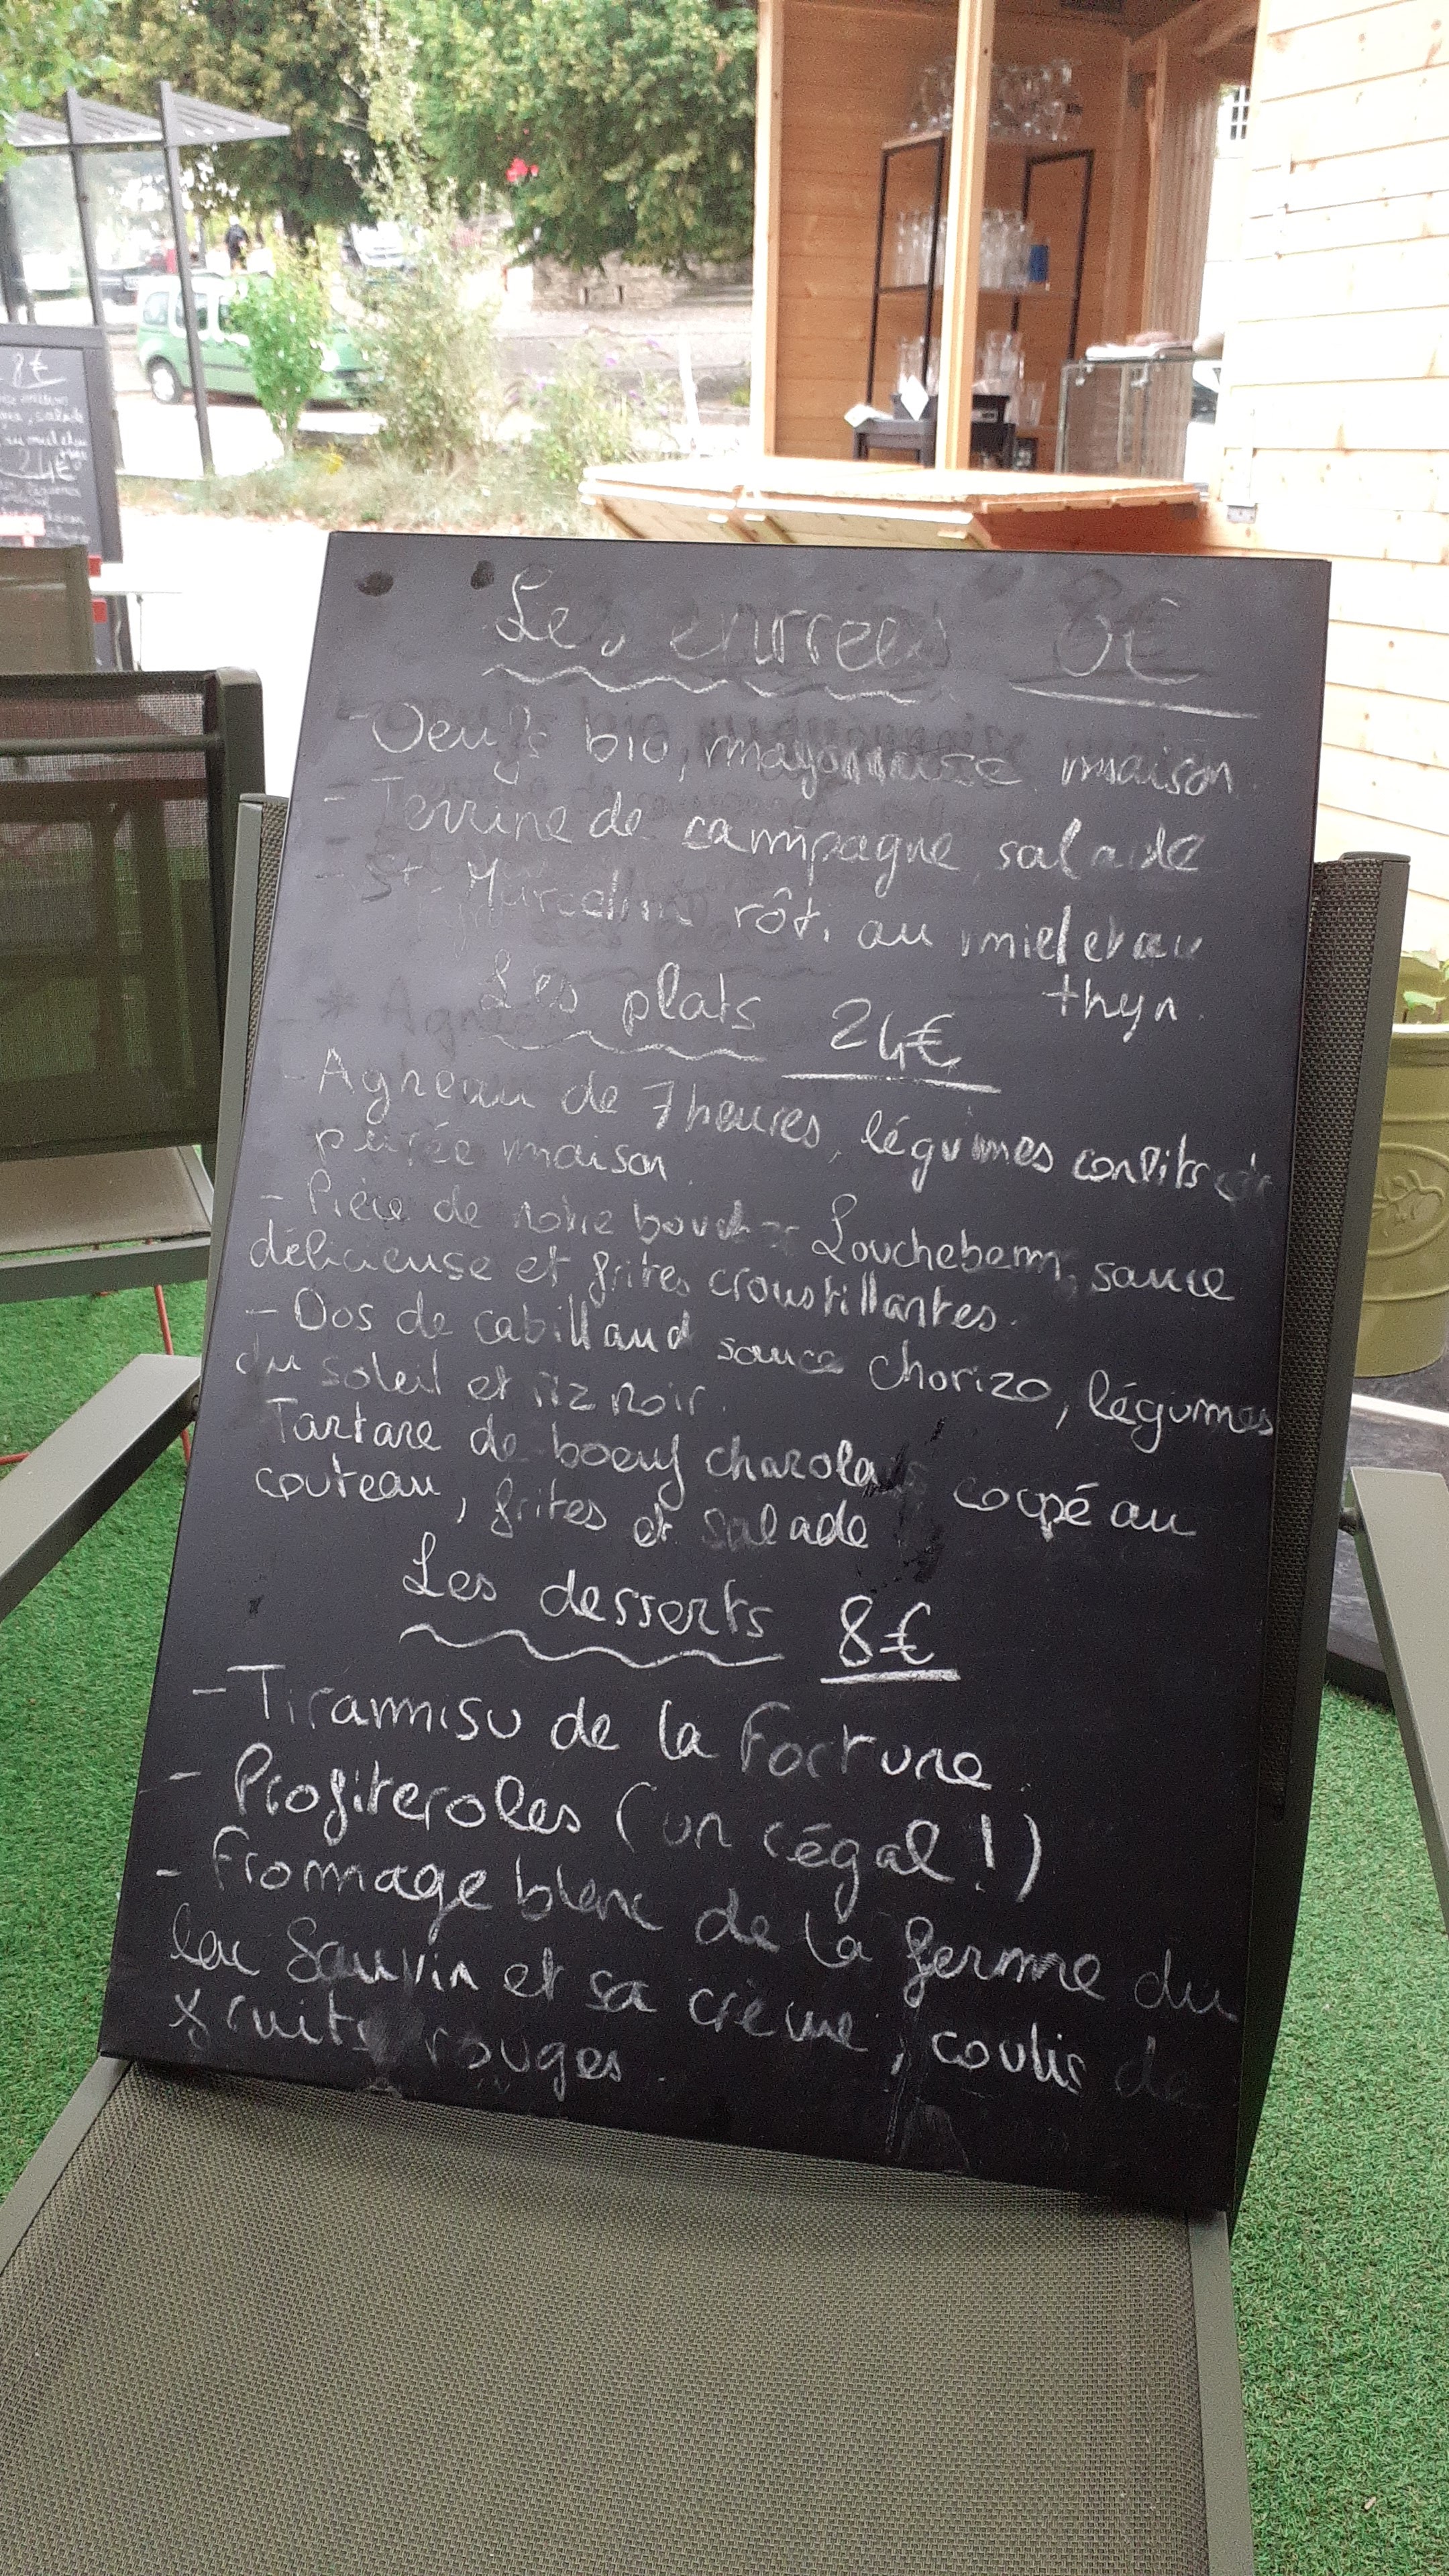 8€
24€
Les entrées 8€
- Oeufs bio, mayonnaise maison
- Terrine de campagne, salade
- St. Marcellin rôti au miel et au
thyn.
Les plats 24€
- Agneau de 7 heures, légumes confits et
purée maison
- Pièce de notre boucher Louchebem, sauce
délicieuse et frites croustillantes.
- Dos de cabillaud sauce chorizo, légumes
du soleil et riz noir.
Tartare de boeuf charolais coupé au
couteau, frites et salade
Les desserts 8€
- Tiramisu de la Fortune
- Profiteroles (un régal !)
- Fromage blanc de la ferme du
lac Sauvin et sa crème, coulis de
fruits rouges